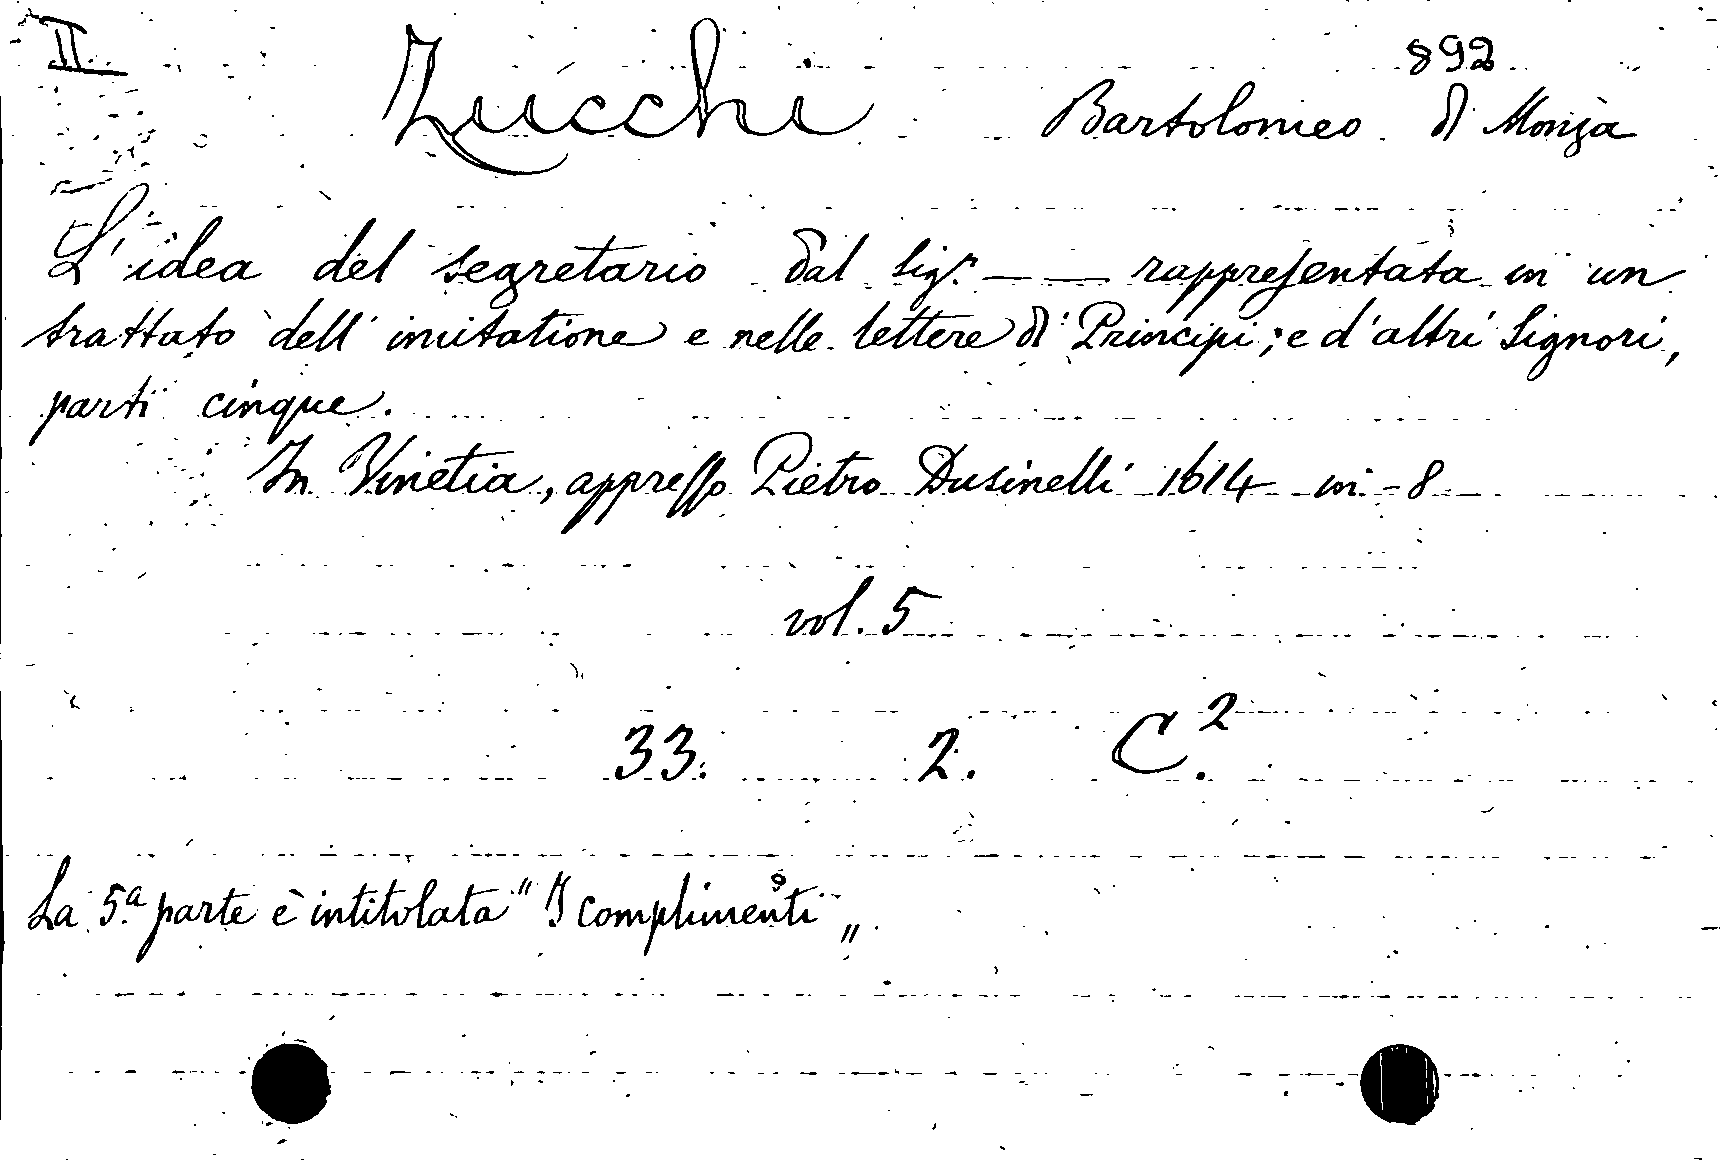 II
892
Zucchi Bartolomeo di Monza
L'idea del segretario dal Sigr. — — rappresentata in un
trattato dell' imitatione e nelle lettere di Principi; e d'altri Signori,
parti cinque.
In Vinetia, appresso Pietro Dusinelli 1614 in-8
vol. 5
33. 2. C.2
La 5.a parte è intitolata "I complimenti„